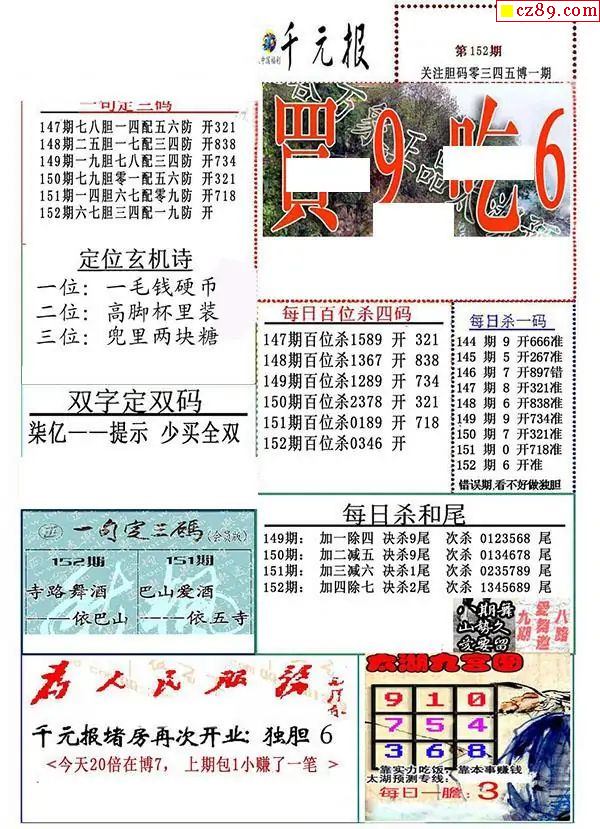 cz89.com
千元报
第152期
关注胆码零三四五博一期
一句定三码
147期七八胆一四配五六防 开321
148期二五胆一七配三四防 开838
149期一九胆七八配三四防 开734
150期七九胆零一配五六防 开321
151期一四胆六九配零七防 开718
152期六七胆三四配一九防 开
買9吃6
定位玄机诗
一位: 一毛钱硬币
二位: 高脚杯里装
三位: 兜里两块糖
每日百位杀四码
147期百位杀1589 开 321
148期百位杀1367 开 838
149期百位杀1289 开 734
150期百位杀2378 开 321
151期百位杀0189 开 718
152期百位杀0346 开
每日杀一码
144 期 9 开666准
145 期 5 开267准
146 期 7 开897错
147 期 8 开321准
148 期 6 开838准
149 期 9 开734准
150 期 7 开321准
151 期 0 开718准
152 期 6 开准
错误期,看不好做独胆
双字定双码
柒亿——提示 少买全双
每日杀和尾
149期: 加一除四 决杀9尾 次杀 0123568 尾
150期: 加二减五 决杀9尾 次杀 0134678 尾
151期: 加三减六 决杀1尾 次杀 0235789 尾
152期: 加四除七 决杀2尾 次杀 1345689 尾
一句定三碼(会员版)
152期
寺路舞酒
——依巴山
151期
巴山爱酒
——依五寺
期舞
山势久
爱要留
八路
愛舞邀
九湖
为人民服务
千元报堵房再次开业: 独胆 6
<今天20倍在博7, 上期包1小赚了一笔 >
太湖九宫图
9 1 0
7 5 4
3 6 8
靠实力吃饭, 靠本事赚钱
太湖预测专线:
每日一胆: 3